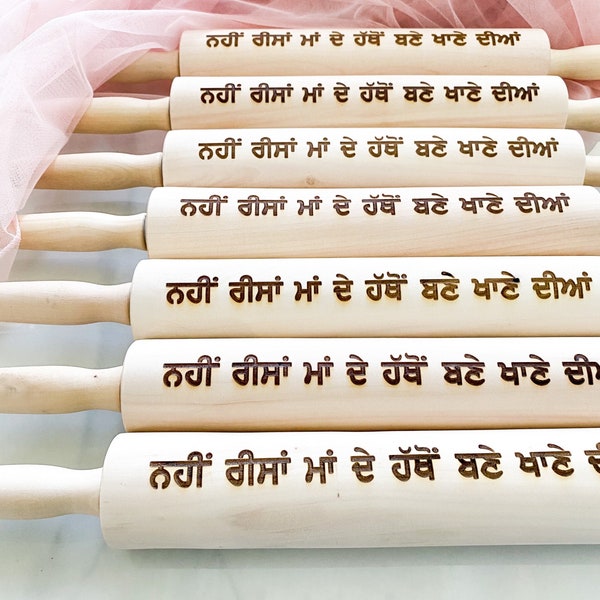 ਨਹੀਂ ਰੀਸਾਂ ਮਾਂ ਦੇ ਹੱਥੋਂ ਬਣੇ ਖਾਣੇ ਦੀਆਂ
ਨਹੀਂ ਰੀਸਾਂ ਮਾਂ ਦੇ ਹੱਥੋਂ ਬਣੇ ਖਾਣੇ ਦੀਆਂ
ਨਹੀਂ ਰੀਸਾਂ ਮਾਂ ਦੇ ਹੱਥੋਂ ਬਣੇ ਖਾਣੇ ਦੀਆਂ
ਨਹੀਂ ਰੀਸਾਂ ਮਾਂ ਦੇ ਹੱਥੋਂ ਬਣੇ ਖਾਣੇ ਦੀਆਂ
ਨਹੀਂ ਰੀਸਾਂ ਮਾਂ ਦੇ ਹੱਥੋਂ ਬਣੇ ਖਾਣੇ ਦੀਆਂ
ਨਹੀਂ ਰੀਸਾਂ ਮਾਂ ਦੇ ਹੱਥੋਂ ਬਣੇ ਖਾਣੇ ਦੀਆਂ
ਨਹੀਂ ਰੀਸਾਂ ਮਾਂ ਦੇ ਹੱਥੋਂ ਬਣੇ ਖਾਣੇ